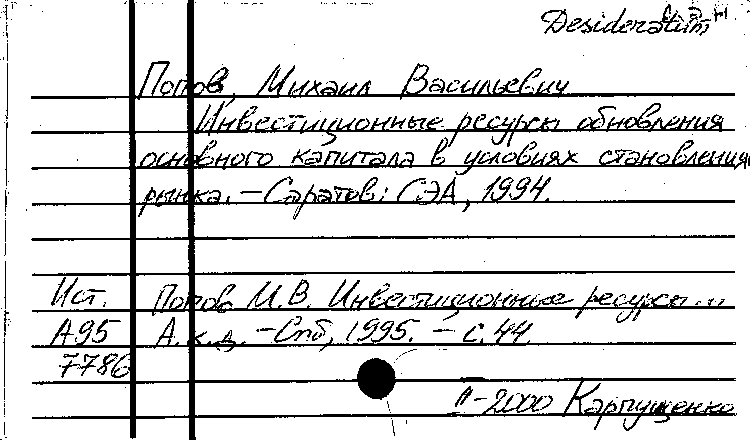 Desideratum
Попов, Михаил Васильевич
Инвестиционные ресурсы обновления
основного капитала в условиях становления
рынка. — Саратов: СЭА, 1994.
Ист. Попов М.В. Инвестиционные ресурсы...
А95 А.к.д. — Спб, 1995. — с.44.
7786
II-2000 Карпущенко